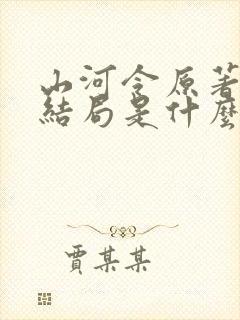 山河令原著
結局是什麼
賈某某